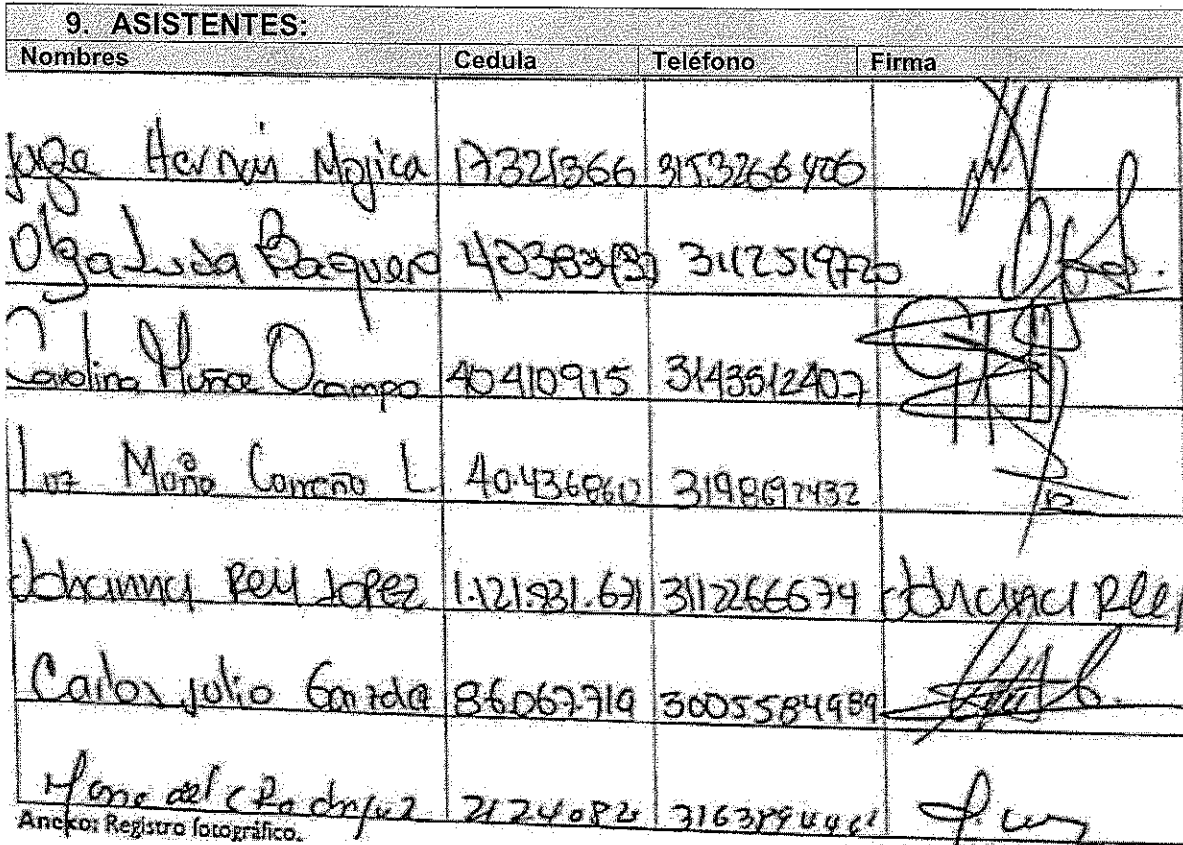 9. ASISTENTES:
Nombres Cedula Teléfono Firma
Jorge Hernan Mojica 17321366 3153266406
Olga Lucia Baquero 3112519720
Carolina Muñoz Ocampo 40410915 3143512407
Luz Carreño L. 40.436860 3198692432
Johanna Rey Lopez 1.121.831.671 3112266674 Johanna Rey
Carlos Julio 86067719 3005584989
Maria del C Rodriguez
Anexo: Registro fotográfico.